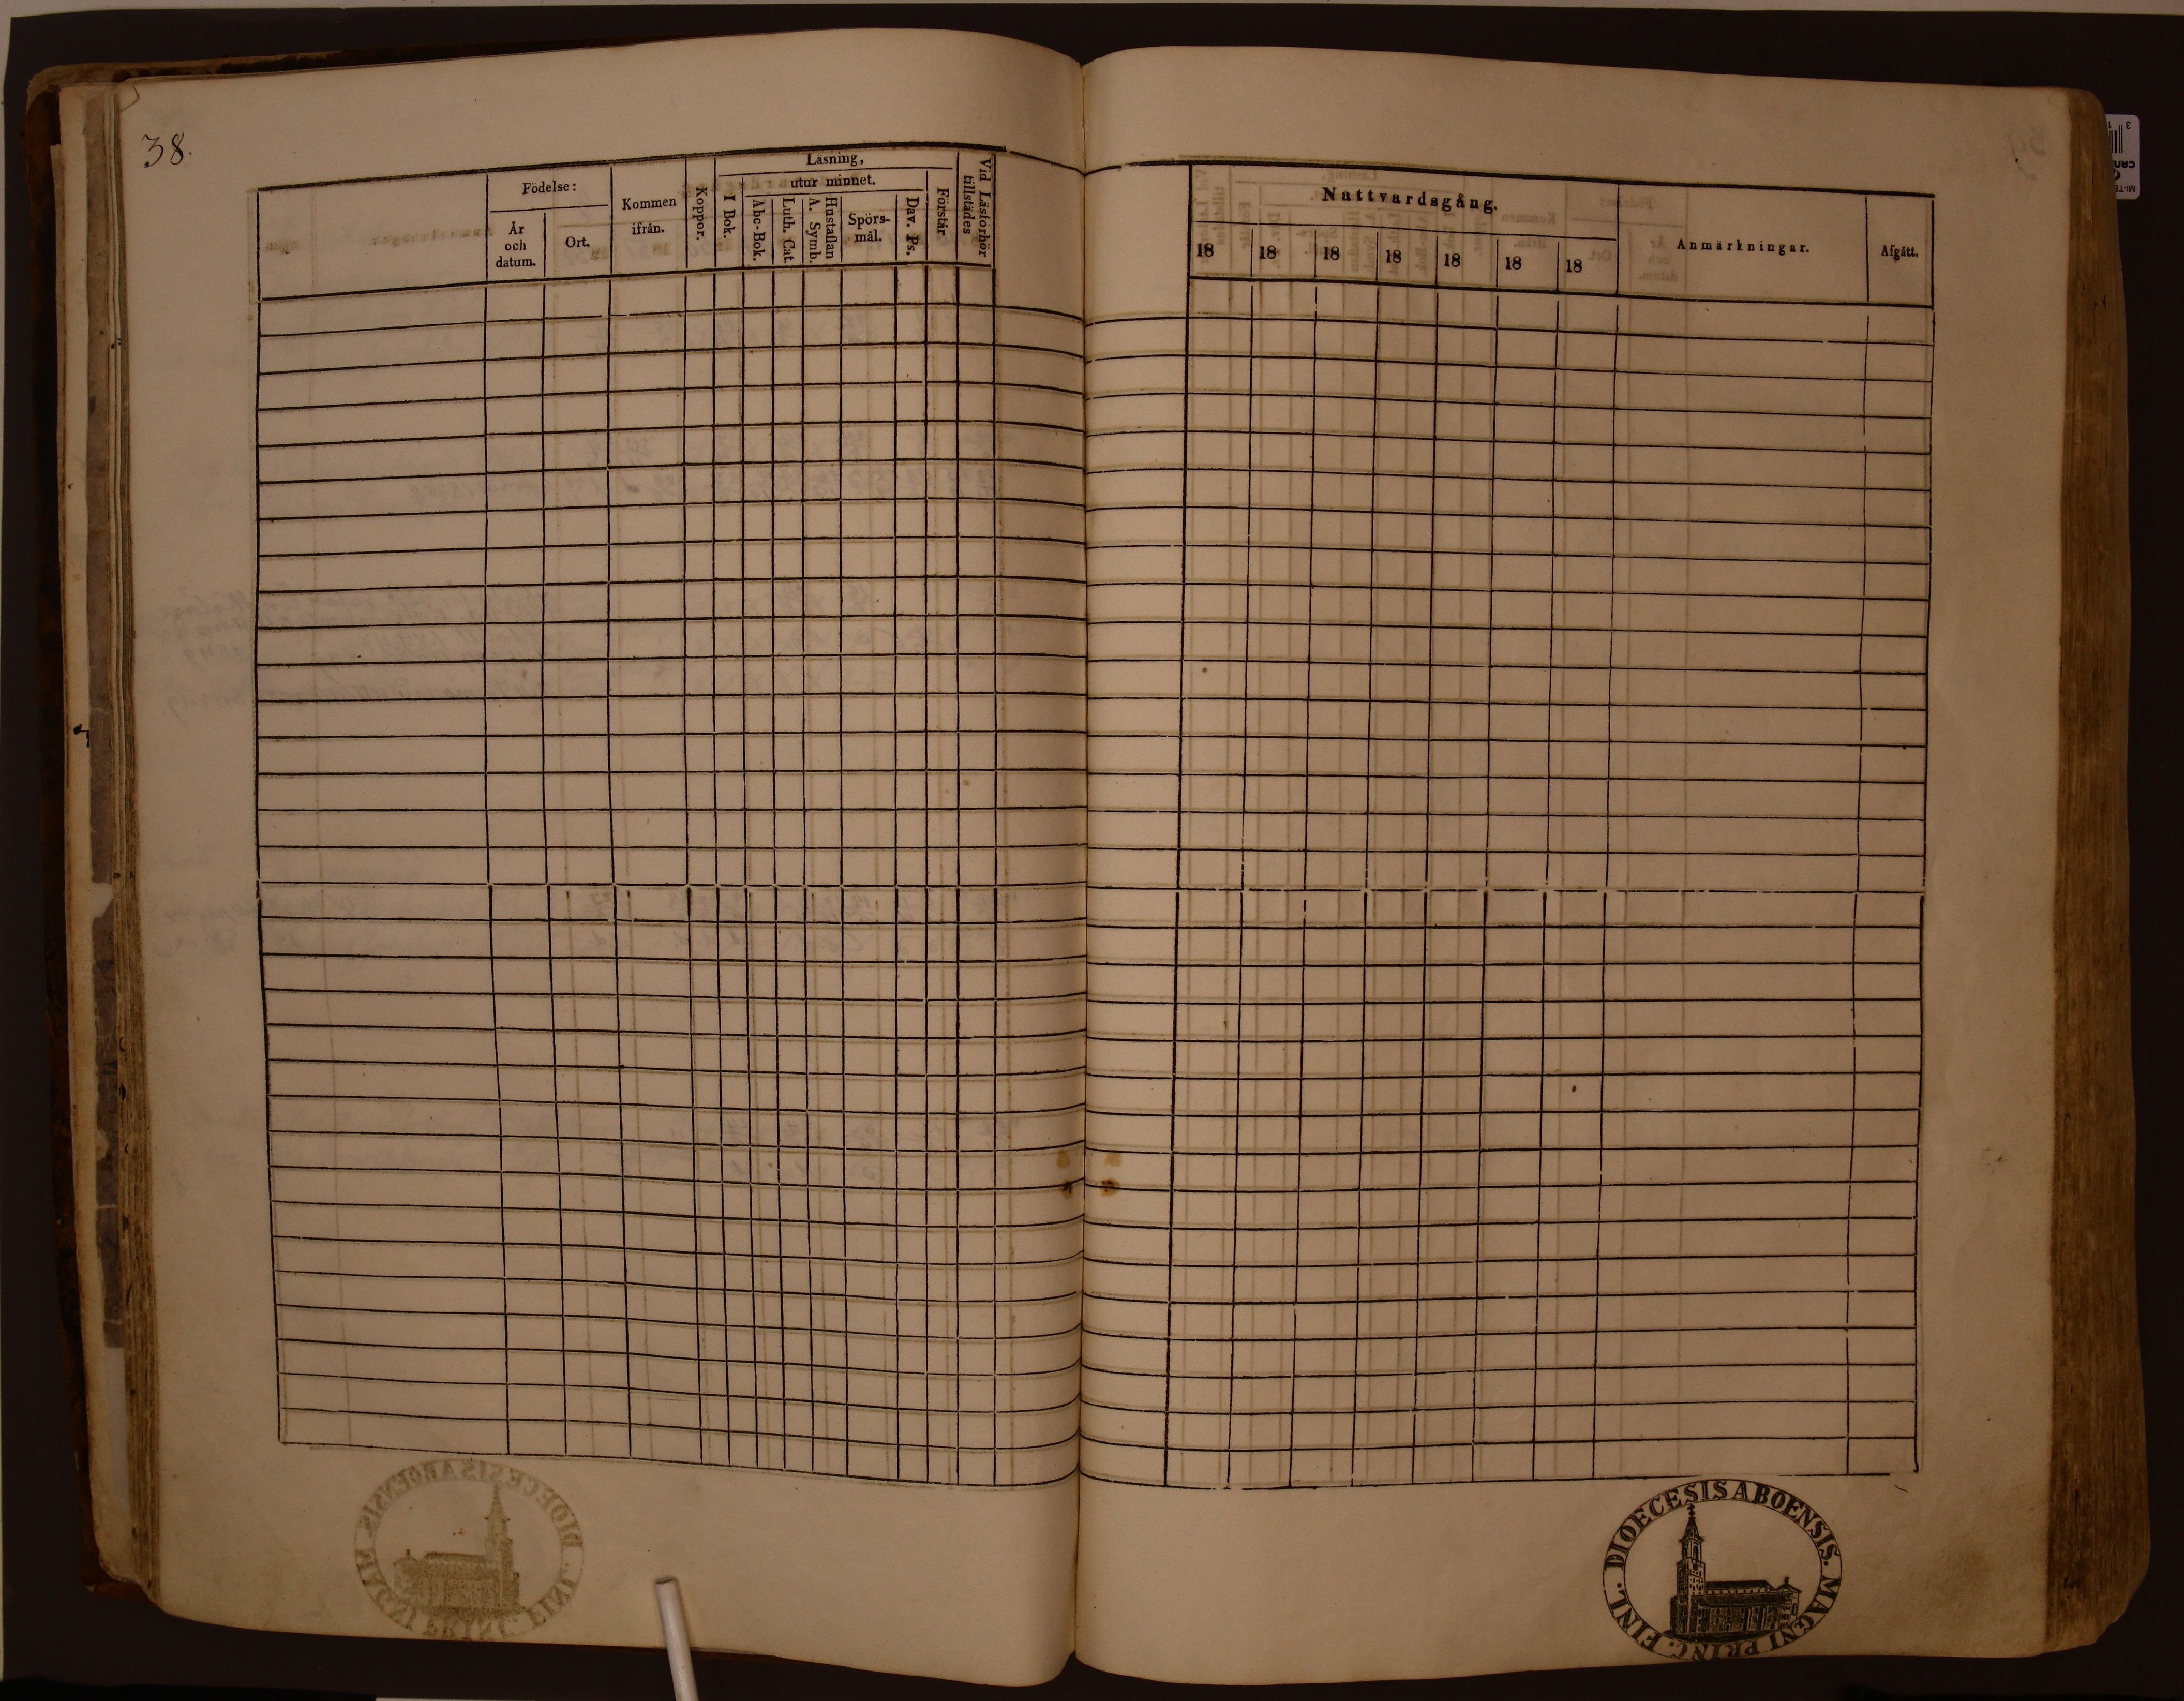 38.
Födelse:
År
och
datum.
Ort.
Kommen
ifrån.
Koppor.
Läsning,
utur minnet.
I Bok.
Abc-Bok.
Luth. Cat.
Hustaflan
A. Symb.
Spörs-
mål.
Dav. Ps.
Förstår
Vid Läsförhör
tillstädes
Nattvardsgång.
18 18 18 18 18 18 18
Anmärkningar.
Afgått.
DIOECESIS ABOENSIS. MAGNI PRINC. FINL.